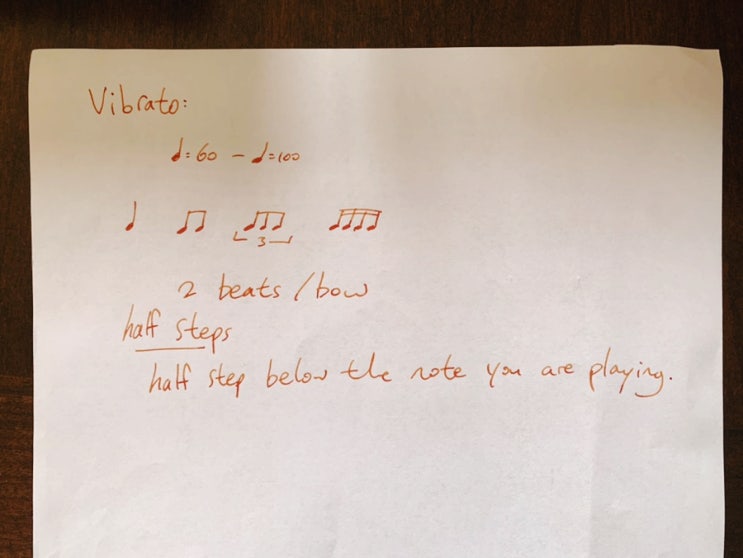 Vibrato:
♩=60 - ♩=100
♩ ♫ 3
2 beats/bow
half steps
half step below the note you are playing.